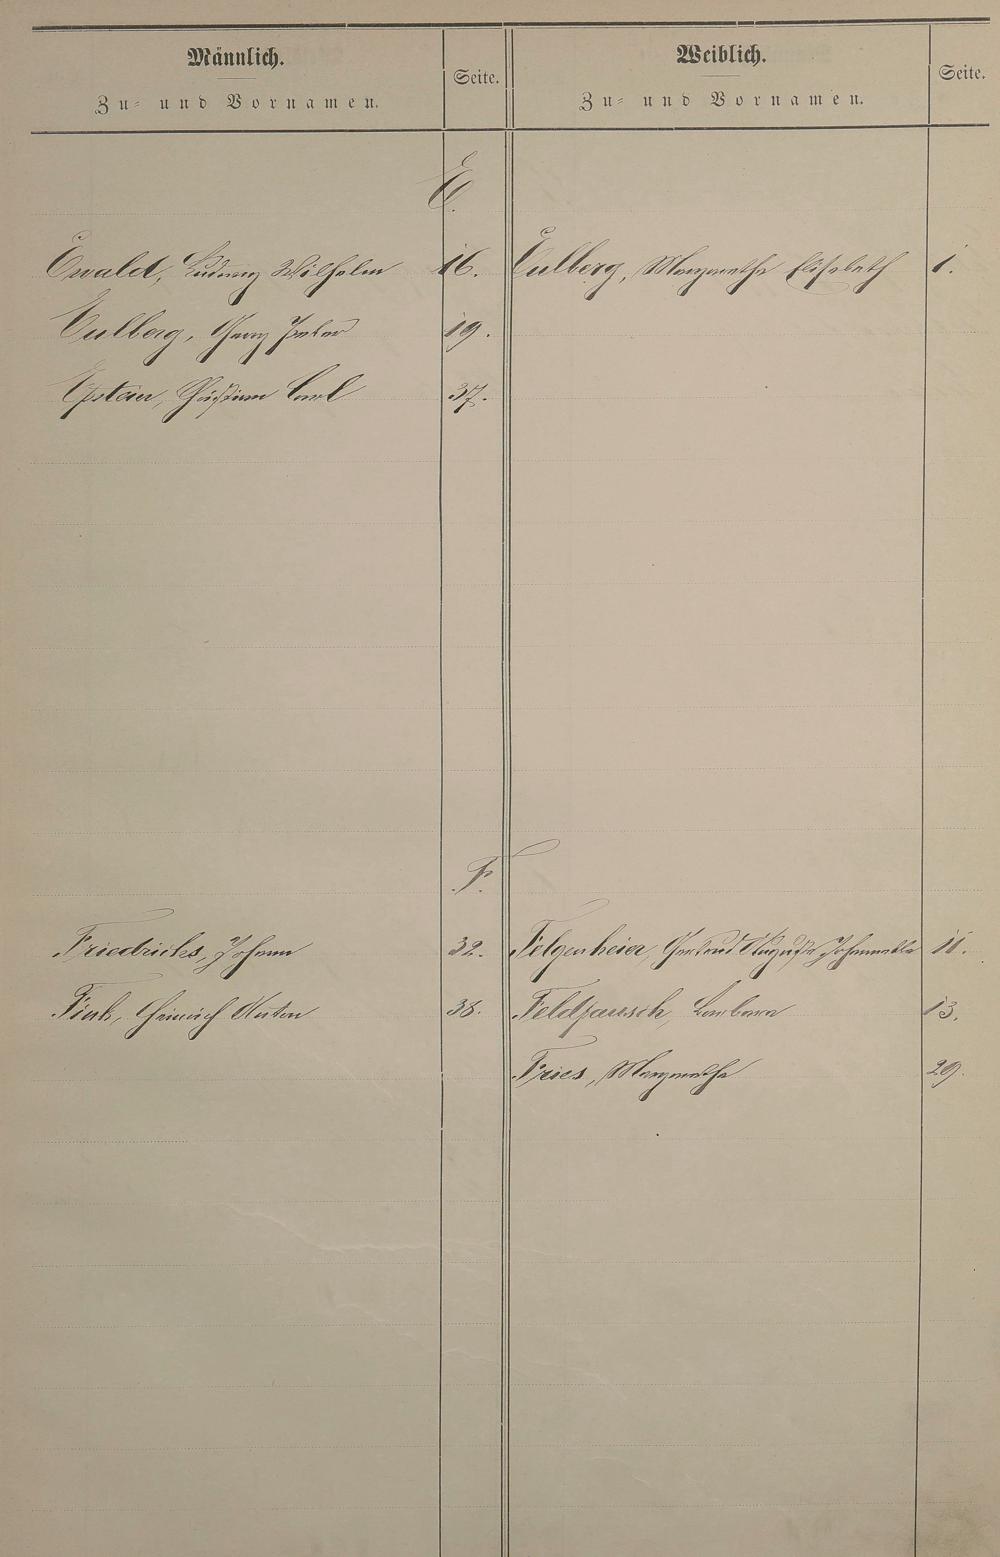 Männlich.
Zu- und Vornamen.
Seite.
Weiblich.
Zu- und Vornamen.
Seite.
E.
Ewald, Ludwig Wilhelm 16. Eulberg, Margarethe Elisabeth 1.
Eulberg, Georg Peter 19.
Epstein, Christian Carl 37.
F.
Friedrichs, Johann 32. Felgenheier, Gertrud Auguste Johannette 11.
Fink, Heinrich Anton 38. Feldpausch, Barbara 13.
Fries, Margarethe 29.